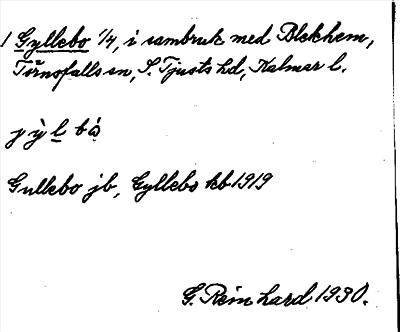 1 Gyllebo 1/4, i sambruk med Blekhem,
Törnsfalls sn, S. Tjusts hd, Kalmar l.
Gullebo jb, Gyllebo kb 1919
G. Reinhard 1930.